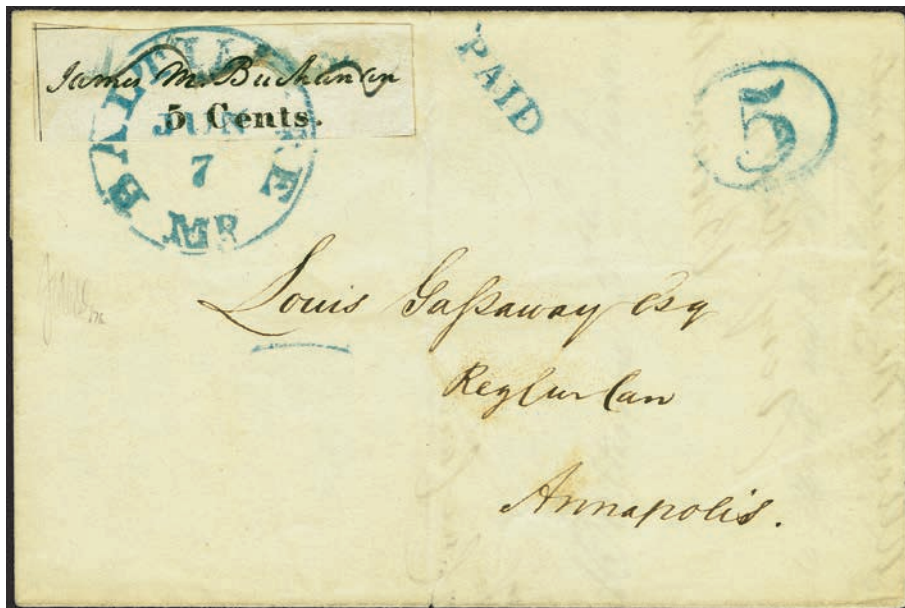 James M. Buchanan
5 Cents.
BALTIMORE
JUN
7
MD
PAID
5
Louis Gaßaway Esq
Annapolis.